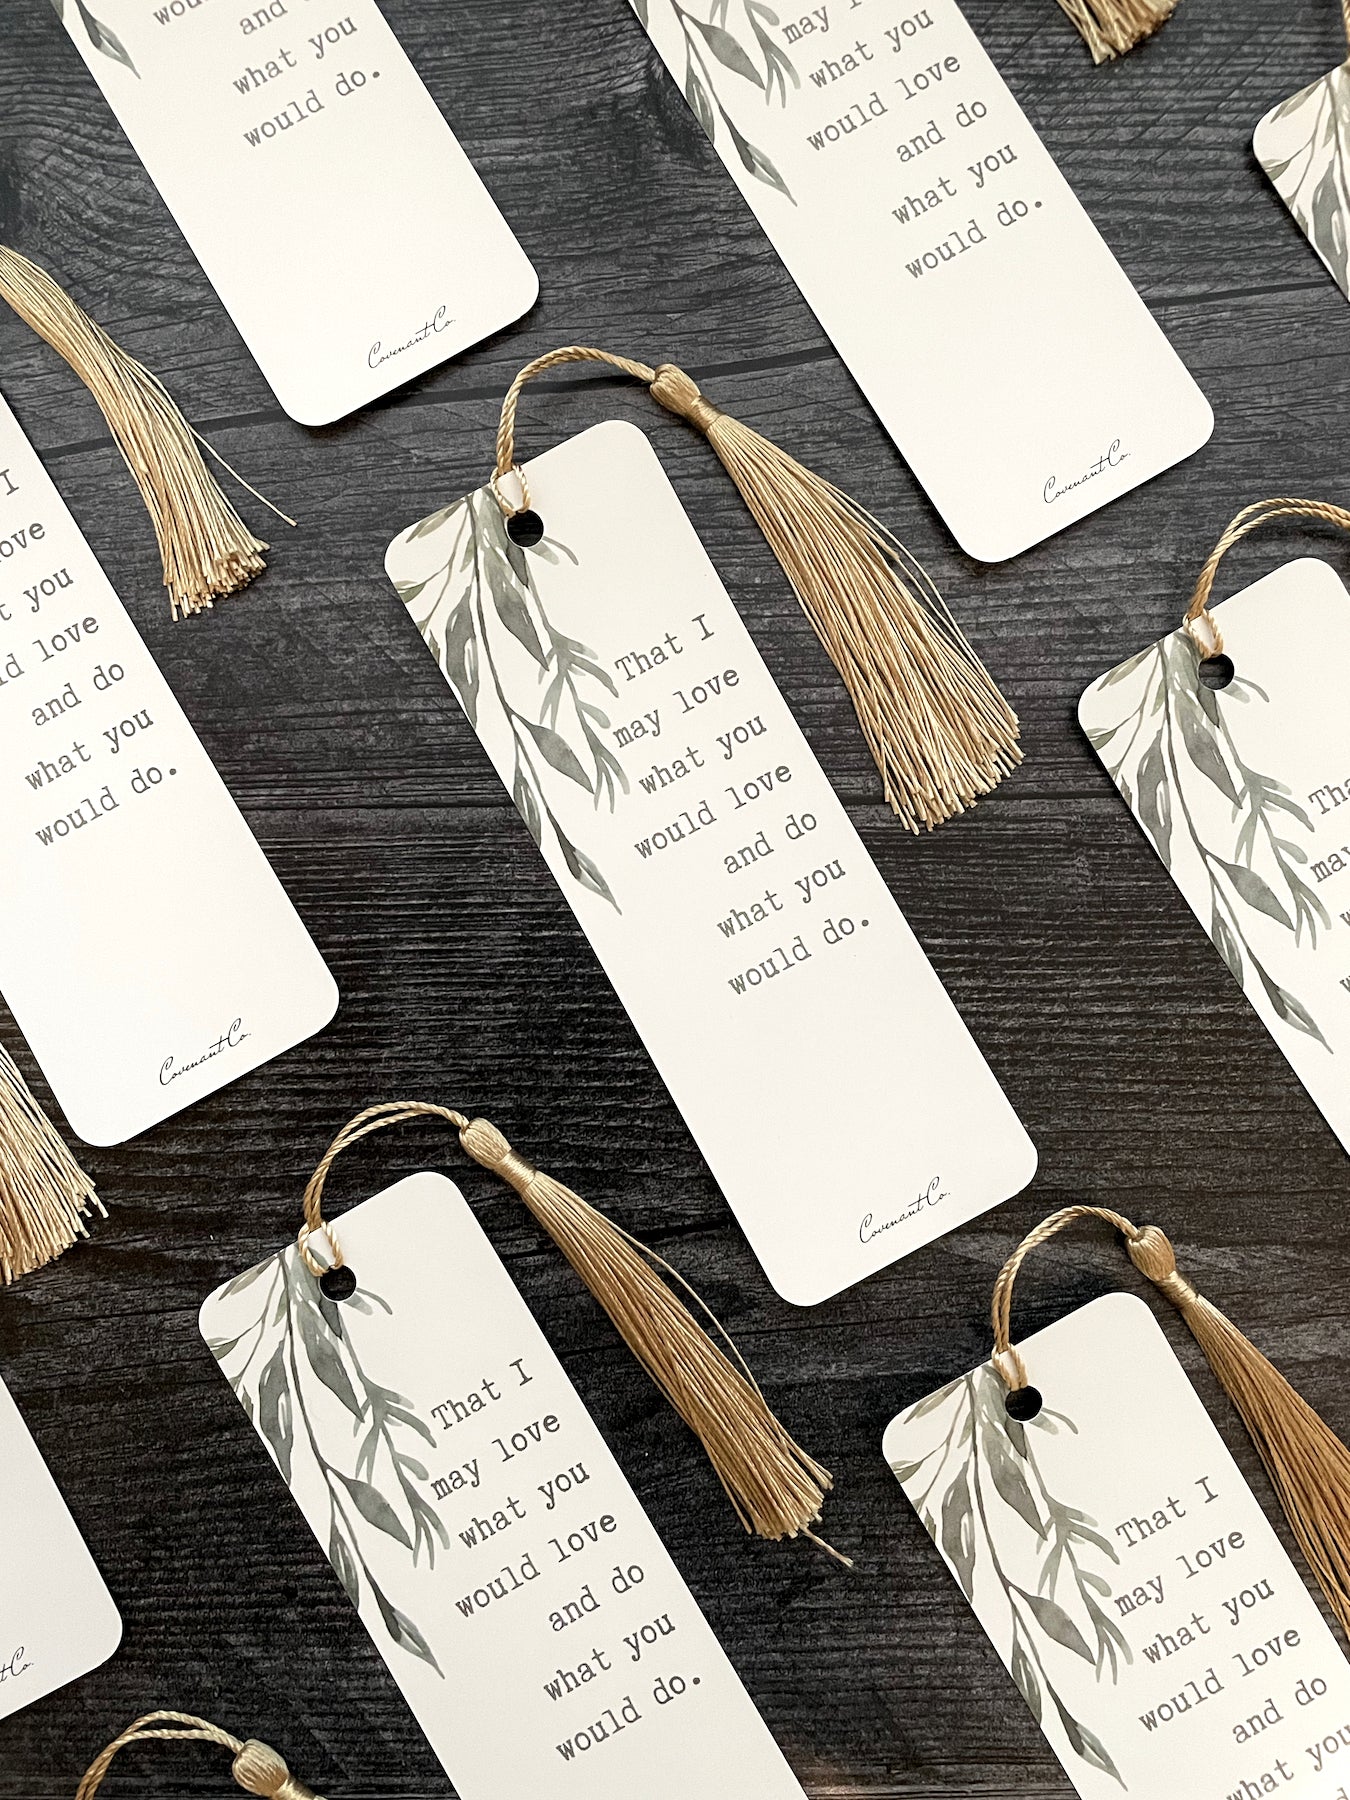 and
what you
would do.
Covenant Co.
may I
what you
would love
and do
what you
would do.
Covenant Co.
I
love
what you
would love
and do
what you
would do.
Covenant Co.
That I
may love
what you
would love
and do
what you
would do.
Covenant Co.
may
That I
may love
what you
would love
and do
what you
would do.
That I
may love
what you
would love
and do
what you